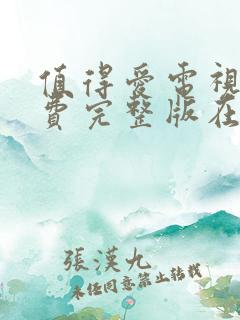 值得爱電視
費完整版在
張漢九
未经同意禁止转载